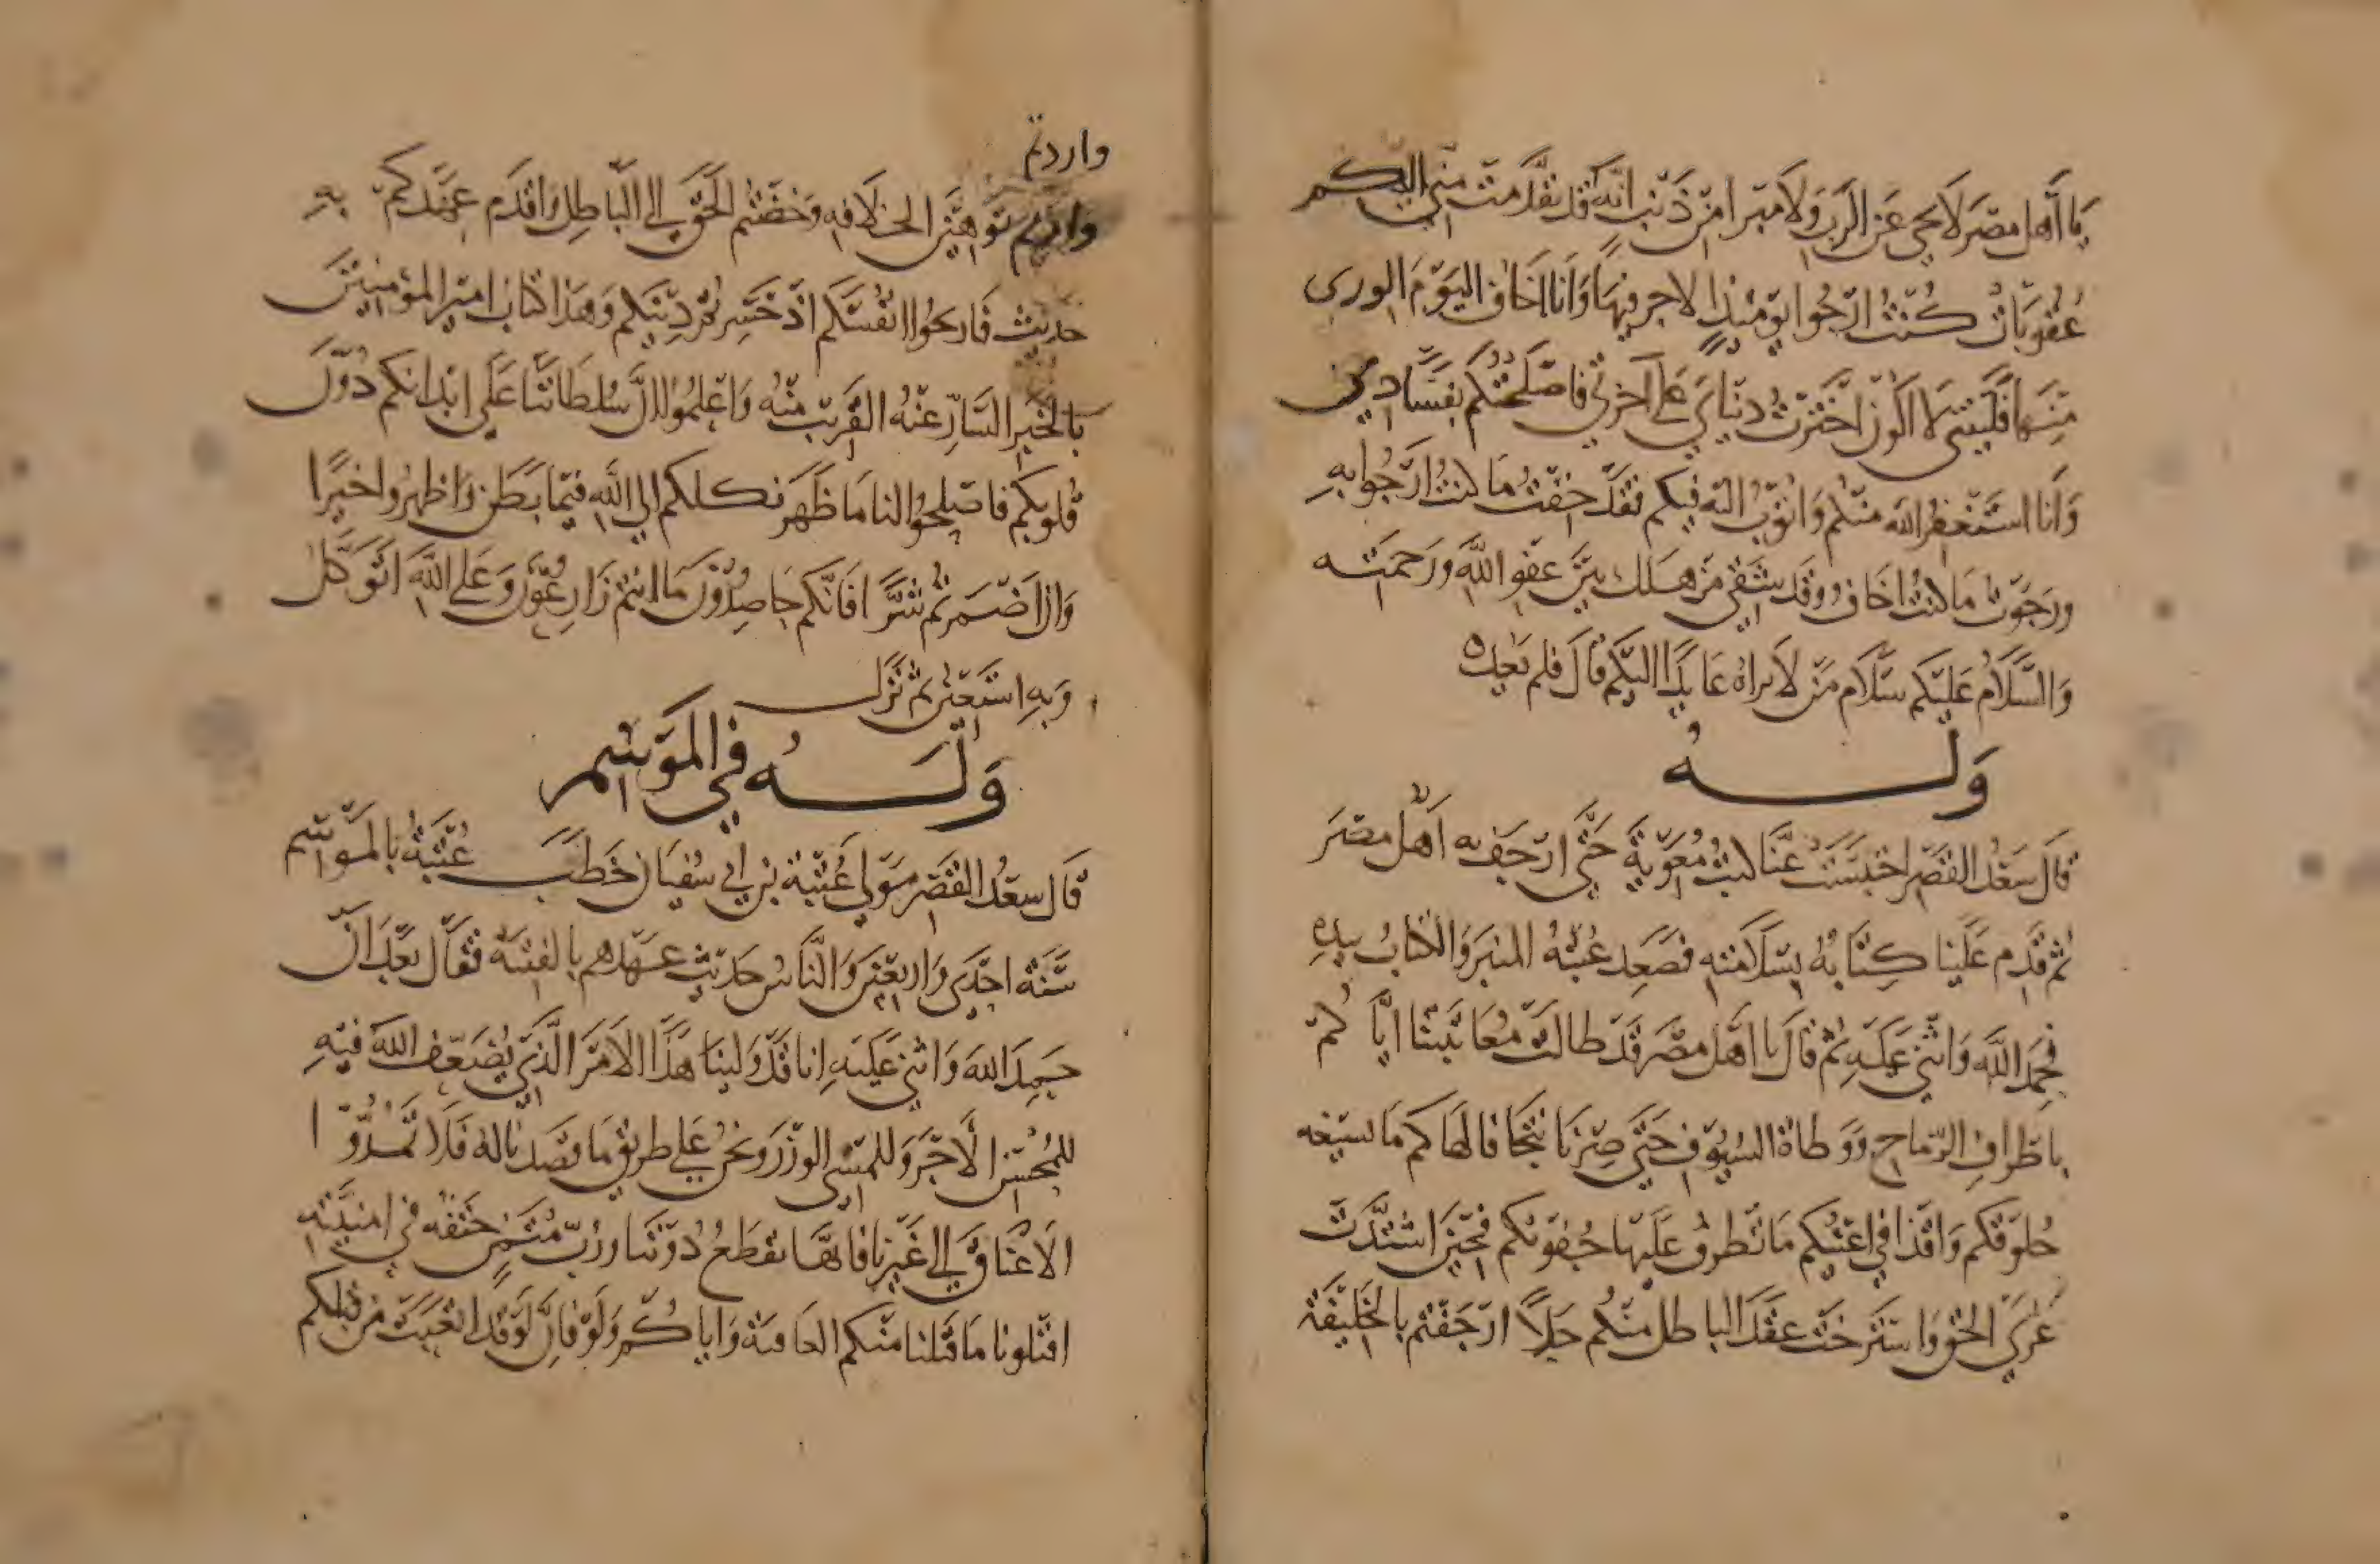 يَا أَهل مصْرَ لَا محى عَن الرَبّ وَلَا مبرا مِنْ ذَنْب انَّهُ قَد تقَدَّمت مني اليكم
عُقُوبَاتٌ كُنْتُ ارْجُوا يَوْمَئِذٍ الاجر فيهَا وَانَا اخَاف اليَوْمَ الوزر
مِنهَا فَلَيْتَنِي لَا اكون اخْتَرْتُ دنيَايَ عَلَى آخرتي فاصْلَحْتُكُم بفسَاد
وَانا اسْتَغْفِرُ الله منْكُم وَاتوبُ اليْه فيكم فقَدْ خِفْتُ مَا كنتُ ارْجُوا بهِ
ورَجَوْتُ مَا كنتُ اخَافُ وَقَد شَقِيَ مَنْ هَلك بيْنَ عَفْو اللهِ ورَحمَته
وَالسَّلَامُ عَليْكم سَلَام مَنْ لَا يراهُ عَايدًا اليْكم قَالَ فلم يَعُد ه
وَلَــــهُ
قَالَ سَعْدُ القَصْر احْتبَسَتْ عَنَّا كتبُ مُعَوِيَة حَتَّى ارْجَفَ به اَهْل مصْرَ
ثُم قَدم عَلَيْنَا كِتَابهُ بسَلَامته فصَعِد عُتْبَة المنبَر وَالكتابُ بيَدِهِ
فحَمِدَ اللَّهَ وَاثْنَى عَلَيْهِ ثُمّ قَالَ يا اهْل مصْرَ قَدْ طالَتْ مُعَاتَبَتنَا ايَّاكُمْ
باطْرافِ الرّماحِ وَوَطاة السُيُوْف حَتى صِرْنَا شَجًا في لهَاكم مَا تسيغه
حُلوْقكم وَاقْذا في اعْيُنكم مَا تَطرفُ عَليْهَا جُفُونكم فحِيْنَ اشتَدَّتْ
عُرَى الحَقّ وَاسْتَرْخَتْ عقَد الباطل منْكُم حَلّاً ارْجَفْتُم بالخَلِيْفَة
وارَدتم
توهينَ الخلافه وَخضْتُم الحَقّ الى البَاطِل وَاقْدَم عَهْدكمْ بهِ
حديث فَاربحُوا انفُسَكم اذْ خَسِرْتُم ديْنكم وَهَذا كتاب امير المؤمنِيْنَ
بالخَبر السَّارّ عنْهُ القريْب منْه وَاعْلَمُوا انَّ سُلطَانَنَا عَلَى ابْدانكم دُوْنَ
قُلوبكم فاصْلِحُوا لنا مَا ظَهَر نكلكم الي اللهِ فيْمَا بطَن وَاظهرُوا خَيرًا
وَان اضْمَرتُم شَرًّا فَانّكم حَاصِدُوْنَ مَا انتُم زَارِعُوْن وَعَلى اللَّه اتَوَكَّل
وَبهِ اسْتَعِيْن ثمّ نَزَل
وَلَــــهُ في الموْسِم
قَالَ سعْدُ القصْر مَوْلى عُتْبَة بن ابي سُفيَان خَطَبَ عُتْبَةُ بالموْسِم
سَنَة احْدَى وَاربعيْنَ وَالنَّاسُ حَديْث عَهْدهم بالفتنَة فقَال بَعْدَ انْ
حَمِدَ اللهَ وَاثنى عَلَيْهِ انا قَدْ وَلينَا هَذَا الامْرَ الَّذِي يُضَعّف اللهُ فيْهِ
للمُحْسِن الْاجْرَ وَللمسْى الوزْرَ وَنحْنُ عَلى طريْق مَا قصَدنا لهُ فَلَا تَمُدُّوْا
الاعْنَاقَ الى غَيْرنا فانهَا تقطَعُ دُوْنَنَا ورُبّ مُتَمَنٍّ حَتْفه في امنيّتهِ
اقبلونا مَا قَبلنا منكم العافيَة وَاياكُم وَلَوْ فانَّ لَوْ قَد اتعَبَت مَن قبلكم